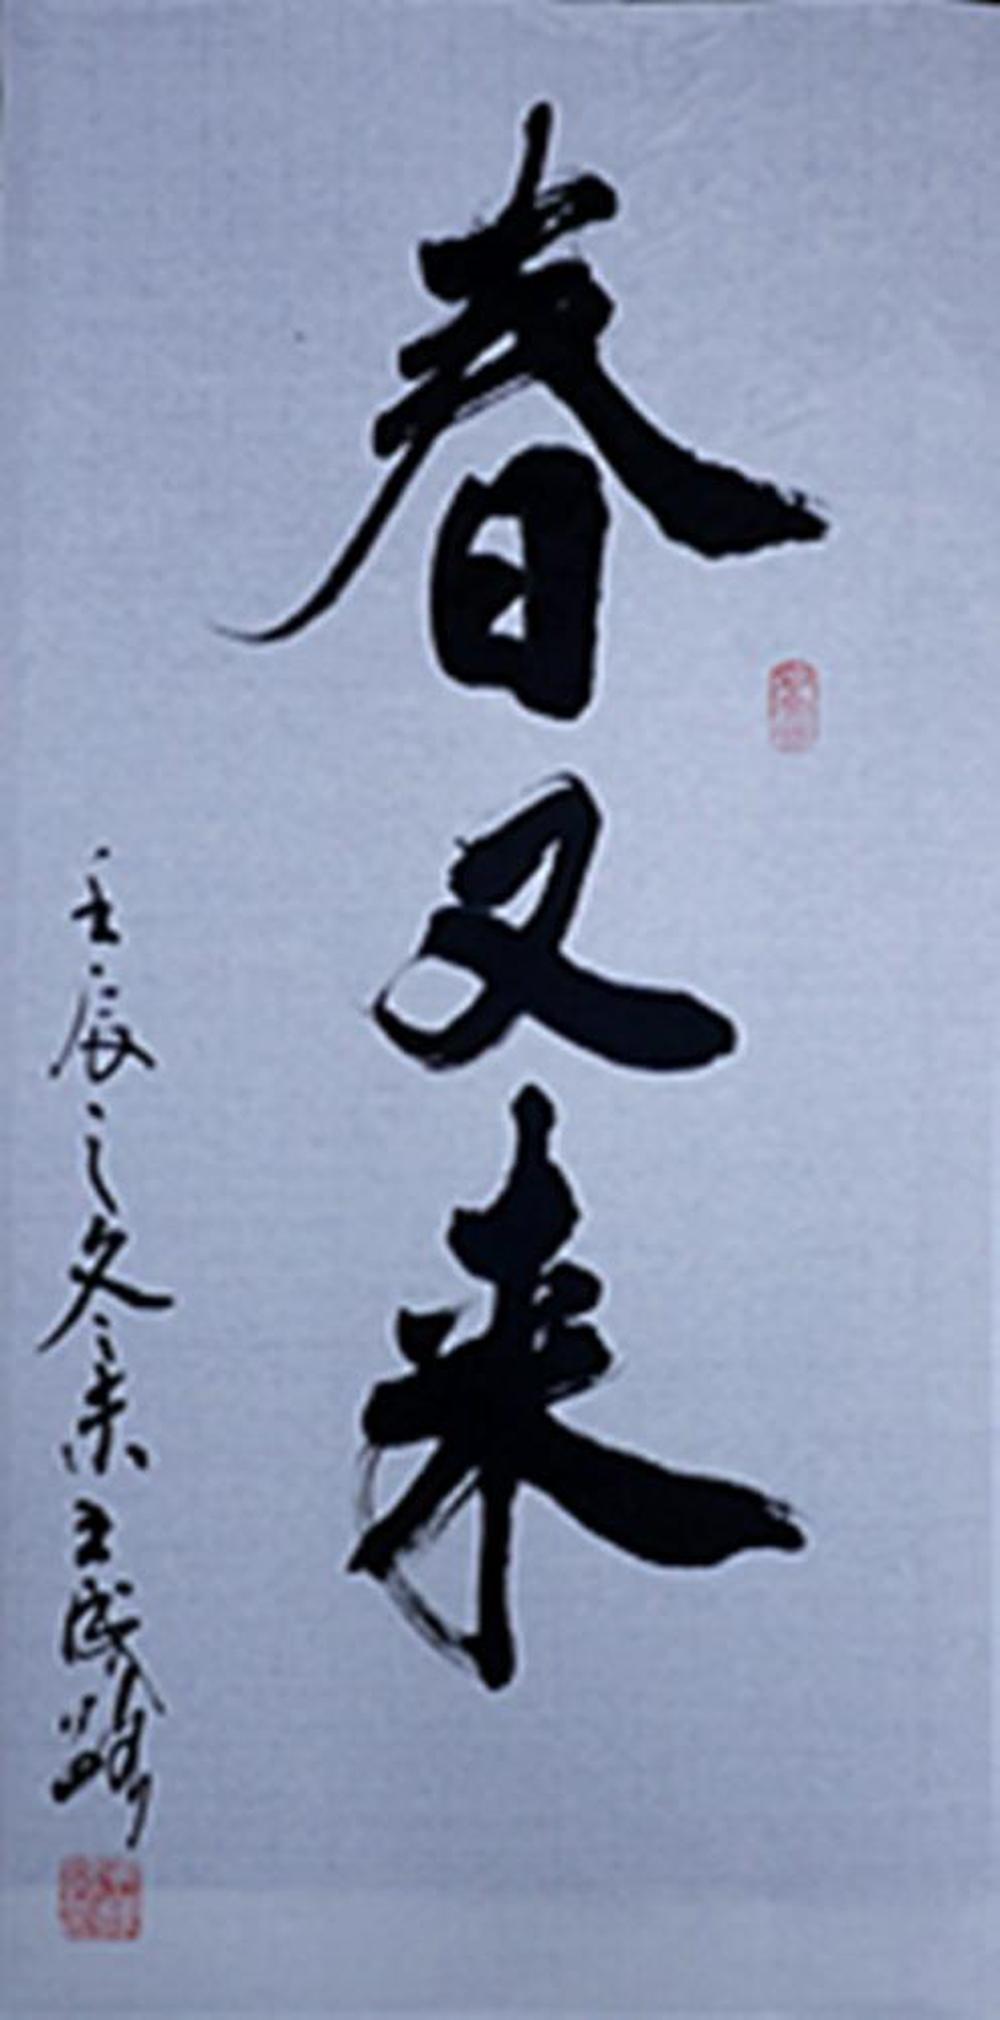 春又来
壬辰之冬末王民